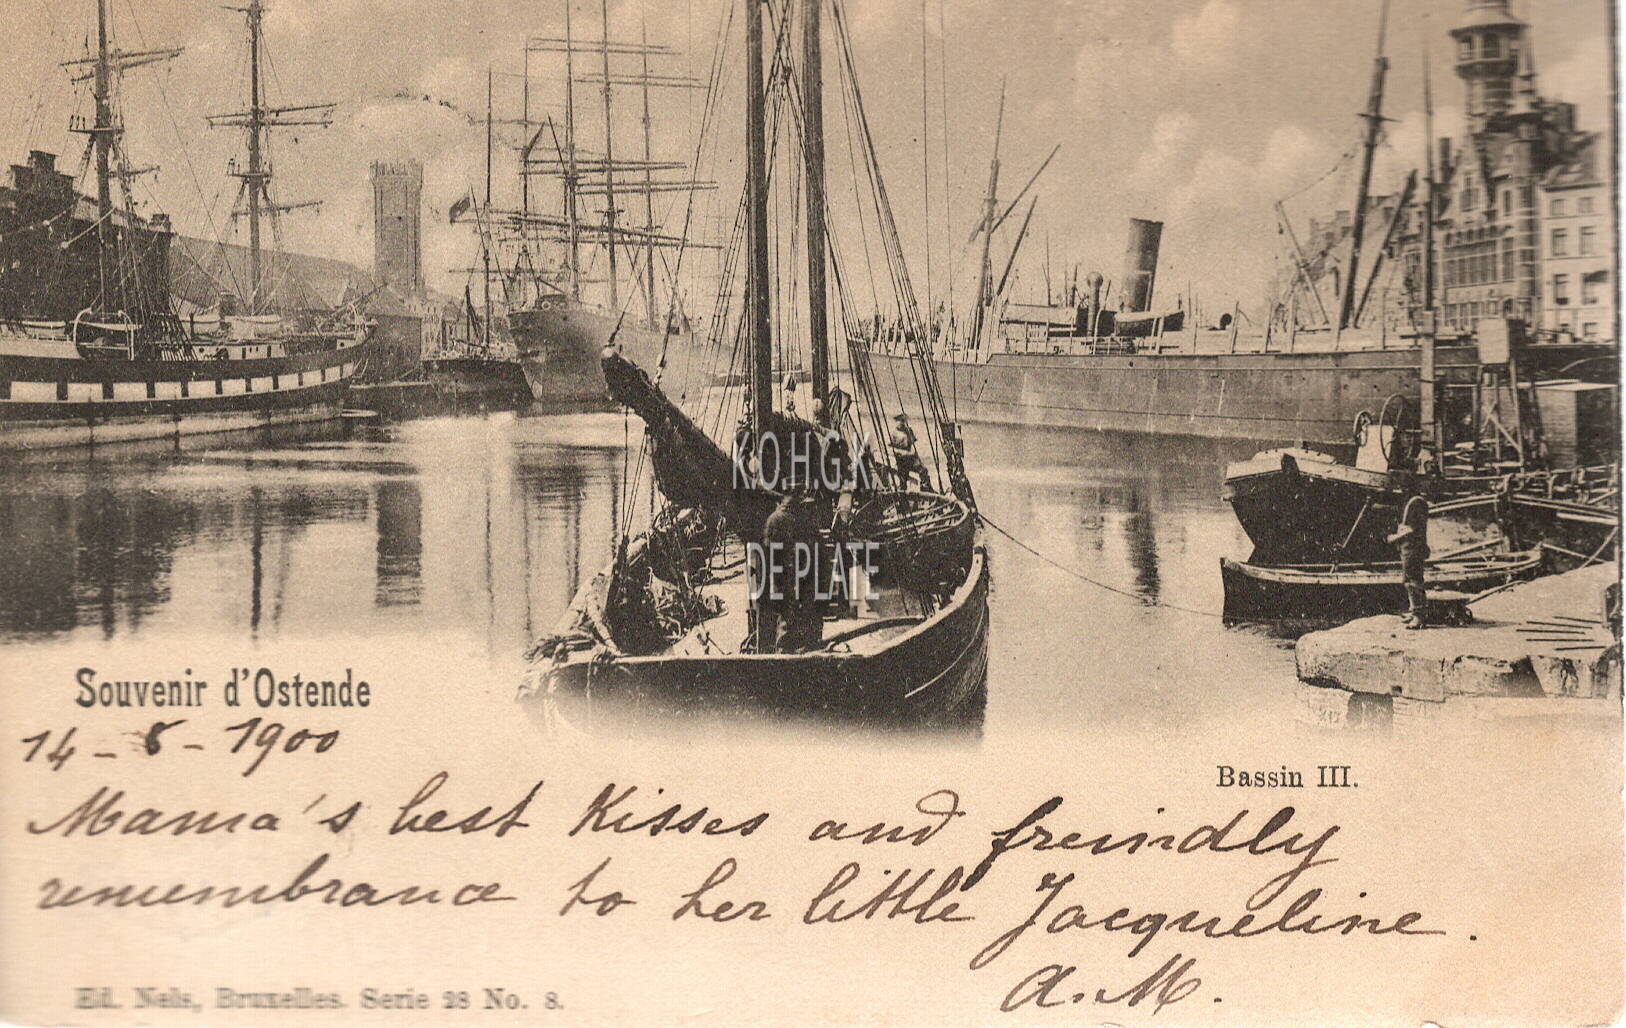 K.O.H.G.K.
DE PLATE
Souvenir d'Ostende
14-8-1900
Bassin III.
Mama's best Kisses and freindly
remembrance to her little Jacqueline.
A.M.
Ed. Nels, Bruxelles. Serie 28 No. 8.